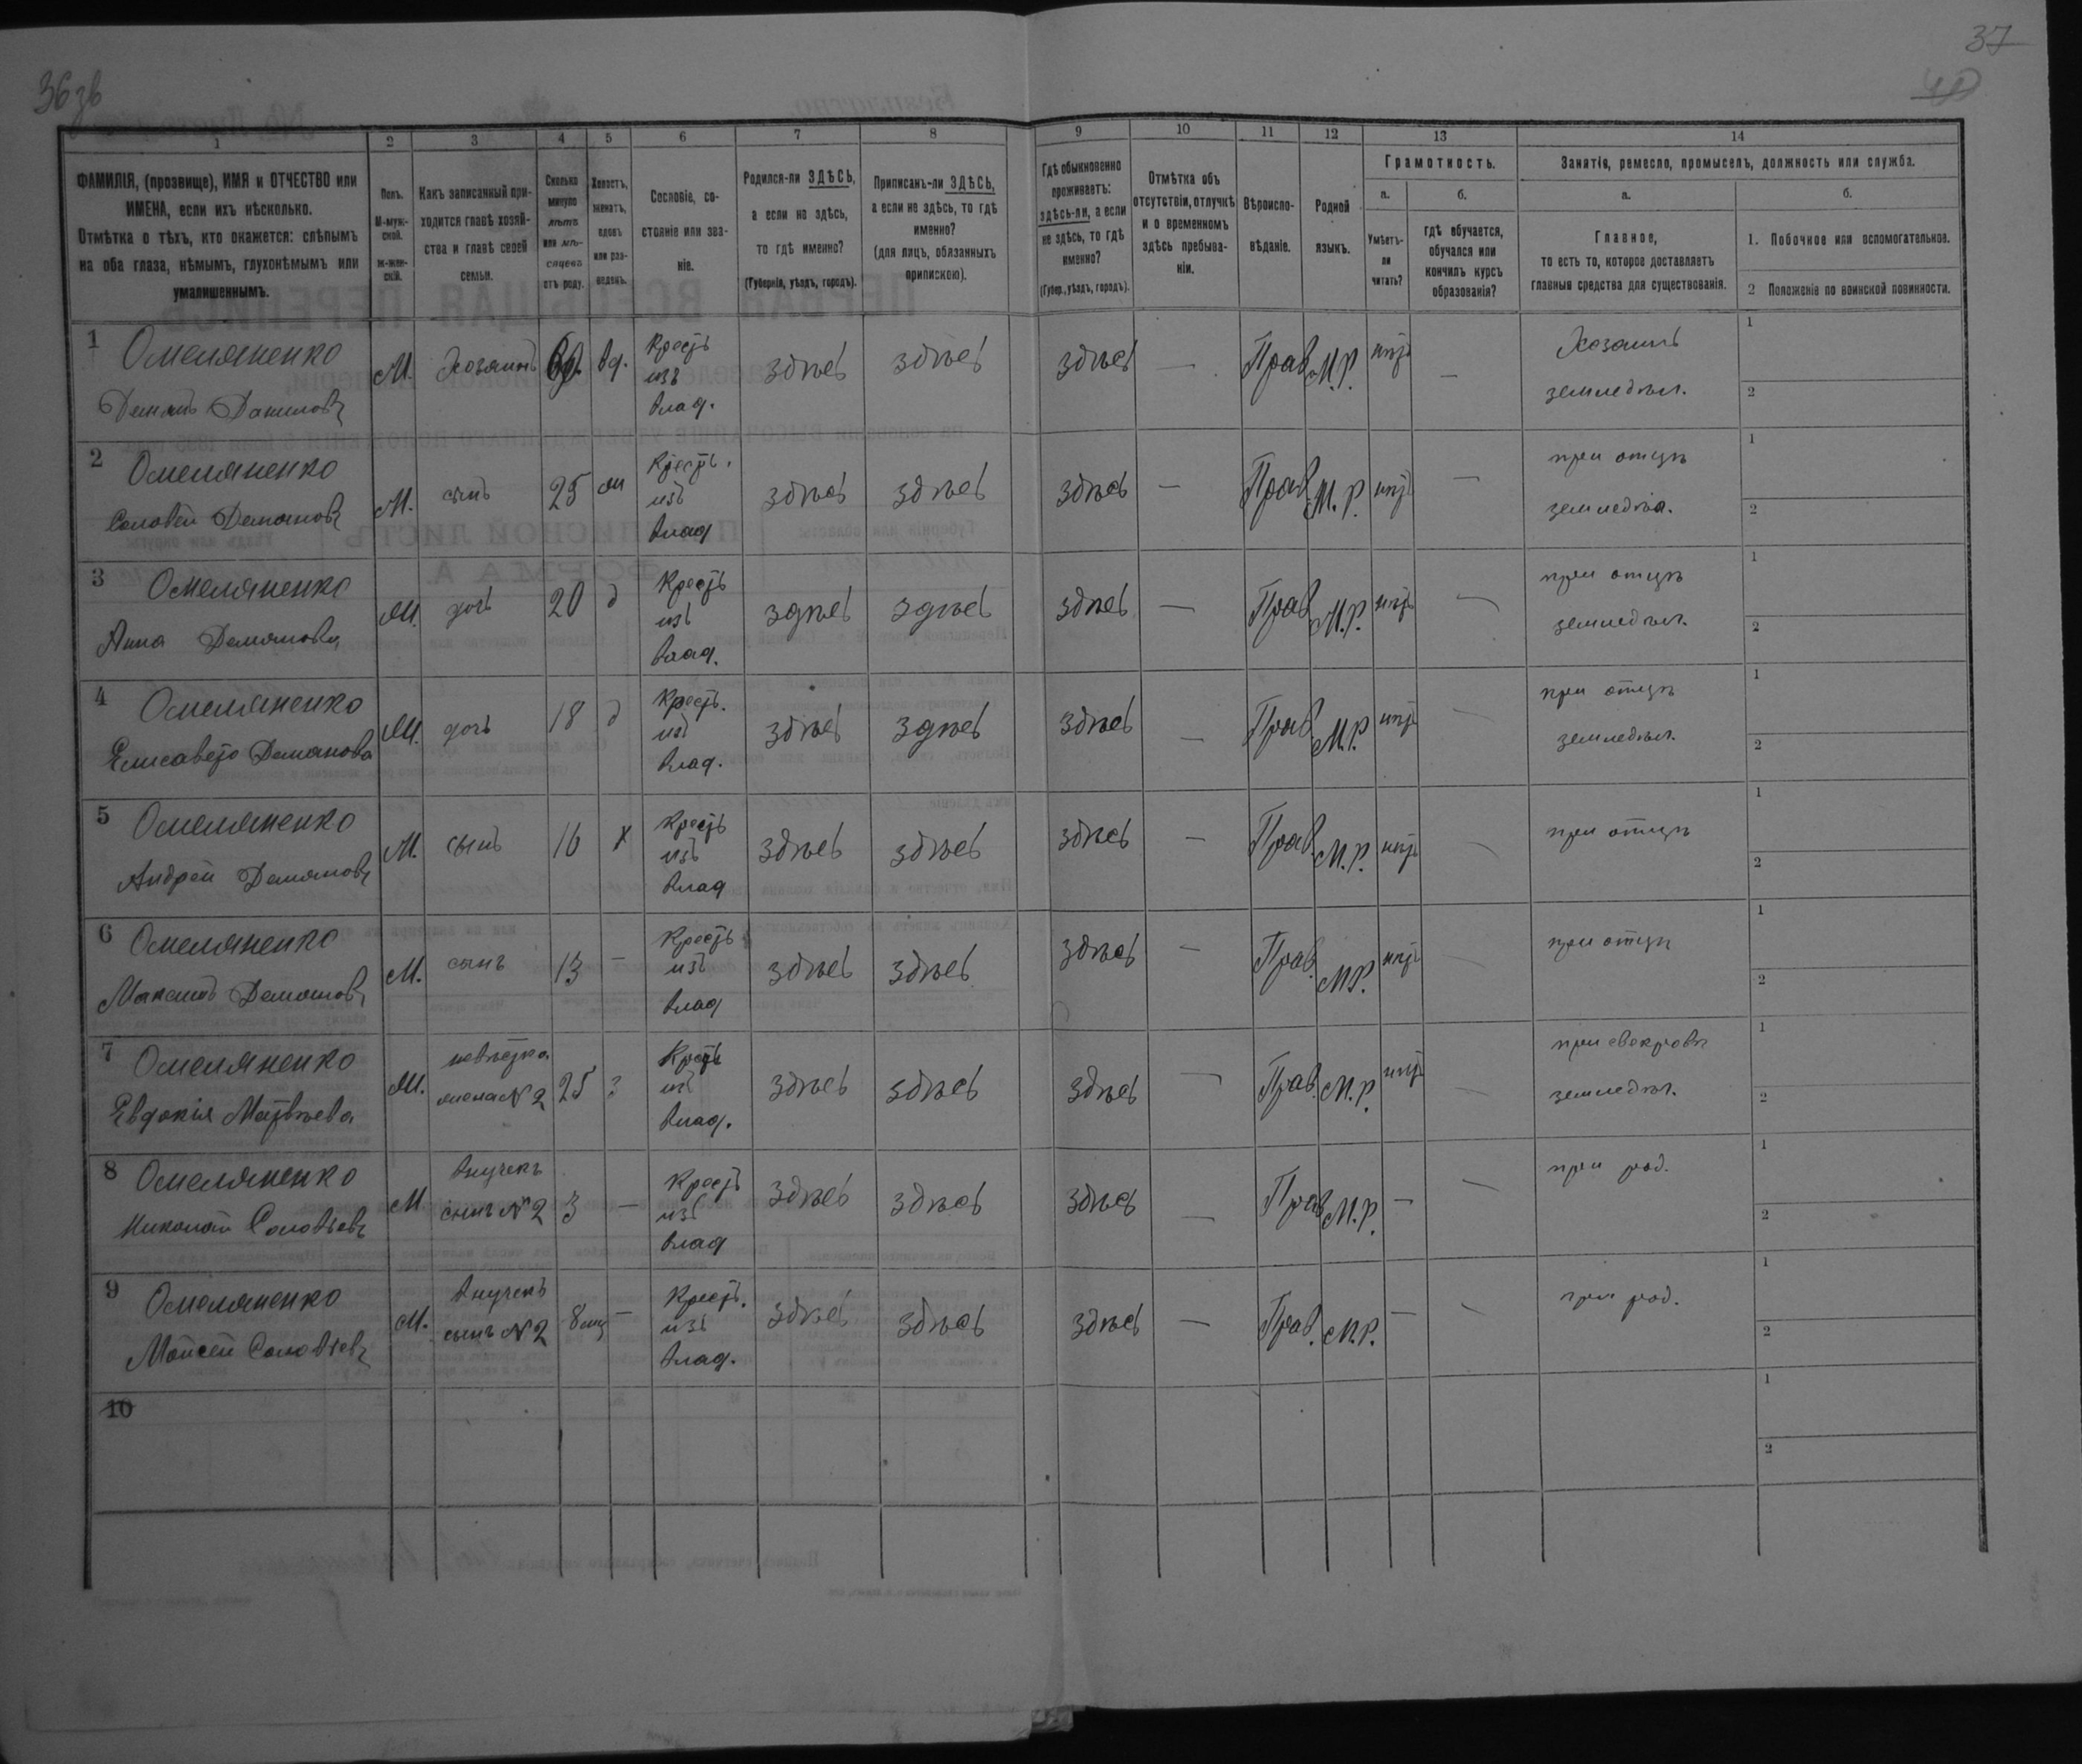 36зв
37
1 2 3 4 5 6 7 8 9 10 11 12 13 14
ФАМИЛІЯ, (прозвище), ИМЯ и ОТЧЕСТВО или ИМЕНА, если ихъ нѣсколько.
Отмѣтка о тѣхъ, кто окажется: слѣпымъ на оба глаза, нѣмымъ, глухонѣмымъ или умалишеннымъ.
Полъ.
М-мужской.
Ж-женскій.
Какъ записанный приходится главѣ хозяйства и главѣ своей семьи.
Сколько минуло лѣтъ или мѣсяцевъ отъ роду.
Холостъ, женатъ, вдовъ или разведенъ.
Сословіе, состояніе или званіе.
Родился-ли ЗДѢСЬ, а если не здѣсь, то гдѣ именно?
(Губернія, уѣздъ, городъ).
Приписанъ-ли ЗДѢСЬ, а если не здѣсь, то гдѣ именно?
(для лицъ, обязанныхъ припискою).
Гдѣ обыкновенно проживаетъ: здѣсь-ли, а если не здѣсь, то гдѣ именно?
(Губер., уѣздъ, городъ).
Отмѣтка объ отсутствіи, отлучкѣ и о временномъ здѣсь пребываніи.
Вѣроисповѣданіе.
Родной языкъ.
Грамотность.
а.
Умѣетъ-ли читать?
б.
гдѣ обучается, обучался или кончилъ курсъ образованія?
Занятія, ремесло, промыселъ, должность или служба.
а.
Главное,
то есть то, которое доставляетъ главныя средства для существованія.
б.
1. Побочное или вспомогательное.
2 Положеніе по воинской повинности.
1 Омеляненко Демянъ Даниловъ М. Хозяинъ вд. Крестъ изъ влад. здѣсь здѣсь здѣсь — Прав М.Р. нѣтъ — Хозяинъ земледѣл. 1 2
2 Омеляненко Соловей Демяновъ М. сынъ 25 жн Крестъ. изъ влад здѣсь здѣсь здѣсь — Прав М.Р. нѣтъ — при отцѣ земледѣл. 1 2
3 Омеляненко Анна Демянова Ж. дочь 20 д Крестъ изъ влад. здѣсь здѣсь здѣсь — Прав М.Р. нѣтъ — при отцѣ земледѣл. 1 2
4 Омеляненко Елисавета Демянова Ж. дочь 18 д Крест. изъ влад. здѣсь здѣсь здѣсь — Прав М.Р. нѣтъ — при отцѣ земледѣл. 1 2
5 Омеляненко Андрей Демяновъ М. сынъ 16 х Крестъ изъ влад здѣсь здѣсь здѣсь — Прав. М.Р. нѣтъ — при отцѣ 1 2
6 Омеляненко Максимъ Демяновъ М. сынъ 13 — Крестъ изъ влад здѣсь здѣсь здѣсь — Прав. М.Р. нѣтъ — при отцѣ 1 2
7 Омеляненко Евдокія Матвѣева Ж. невѣстка жена N 2 25 з Крестъ изъ влад. здѣсь здѣсь здѣсь — Прав. М.Р. нѣтъ — при свекровѣ земледѣл. 1 2
8 Омеляненко Николай Соловьевъ М внучекъ сынъ N 2 3 — Крестъ изъ влад здѣсь здѣсь здѣсь — Прав М.Р. — — при род. 1 2
9 Омеляненко Мойсей Соловьевъ М. внучекъ сынъ N 2 8 мц — Крестъ. изъ влад. здѣсь здѣсь здѣсь — Прав. М.Р. — — при род. 1 2
10 1 2